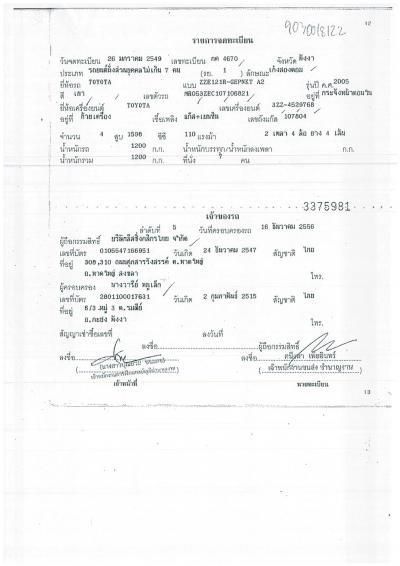 9030018122
12
รายการจดทะเบียน
วันจดทะเบียน 26 มกราคม 2549 เลขทะเบียน กค 4670 จังหวัด พังงา
ประเภท รถยนต์นั่งส่วนบุคคลไม่เกิน 7 คน (รย. 1 ) ลักษณะ เก๋งสองตอน
ยี่ห้อรถ TOYOTA แบบ ZZE121R-GEPNKT A2 รุ่นปี ค.ศ. 2005
สี เทา เลขตัวรถ MR053ZEC107106821 อยู่ที่
ยี่ห้อเครื่องยนต์ TOYOTA เลขเครื่องยนต์ 3ZZ-4529768
อยู่ที่ เครื่อง เชื้อเพลิง เลขถังแก๊ส 107804
จำนวน 4 สูบ 1598 ซีซี 110 แรงม้า 2 เพลา 4 ล้อ ยาง 4 เส้น
น้ำหนักรถ 1200 ก.ก. น้ำหนักบรรทุก/น้ำหนักลงเพลา ก.ก.
น้ำหนักรวม 1200 ก.ก. ที่นั่ง 7 คน
3375981
เจ้าของรถ
ลำดับที่ 5 วันที่ครอบครองรถ 16 ธันวาคม 2556
ผู้ถือกรรมสิทธิ์ บริษัทลีสซิ่งกสิกรไทย จำกัด
เลขที่บัตร 0105547166951 วันเกิด 24 ธันวาคม 2547 สัญชาติ ไทย
ที่อยู่ 308,310 ถนนศุภสารรังสรรค์ ต.หาดใหญ่
อ.หาดใหญ่ สงขลา โทร.
ผู้ครอบครอง
เลขที่บัตร 2801100017631 วันเกิด 2 กุมภาพันธ์ 2515 สัญชาติ ไทย
ที่อยู่ 6/3 หมู่ 3
โทร.
สัญญาเช่าซื้อเลขที่ ลงวันที่
ลงชื่อ ผู้ถือกรรมสิทธิ์
ลงชื่อ ลงชื่อ
เจ้าพนักงานขนส่ง ชำนาญงาน
เจ้าหน้าที่ นายทะเบียน
13